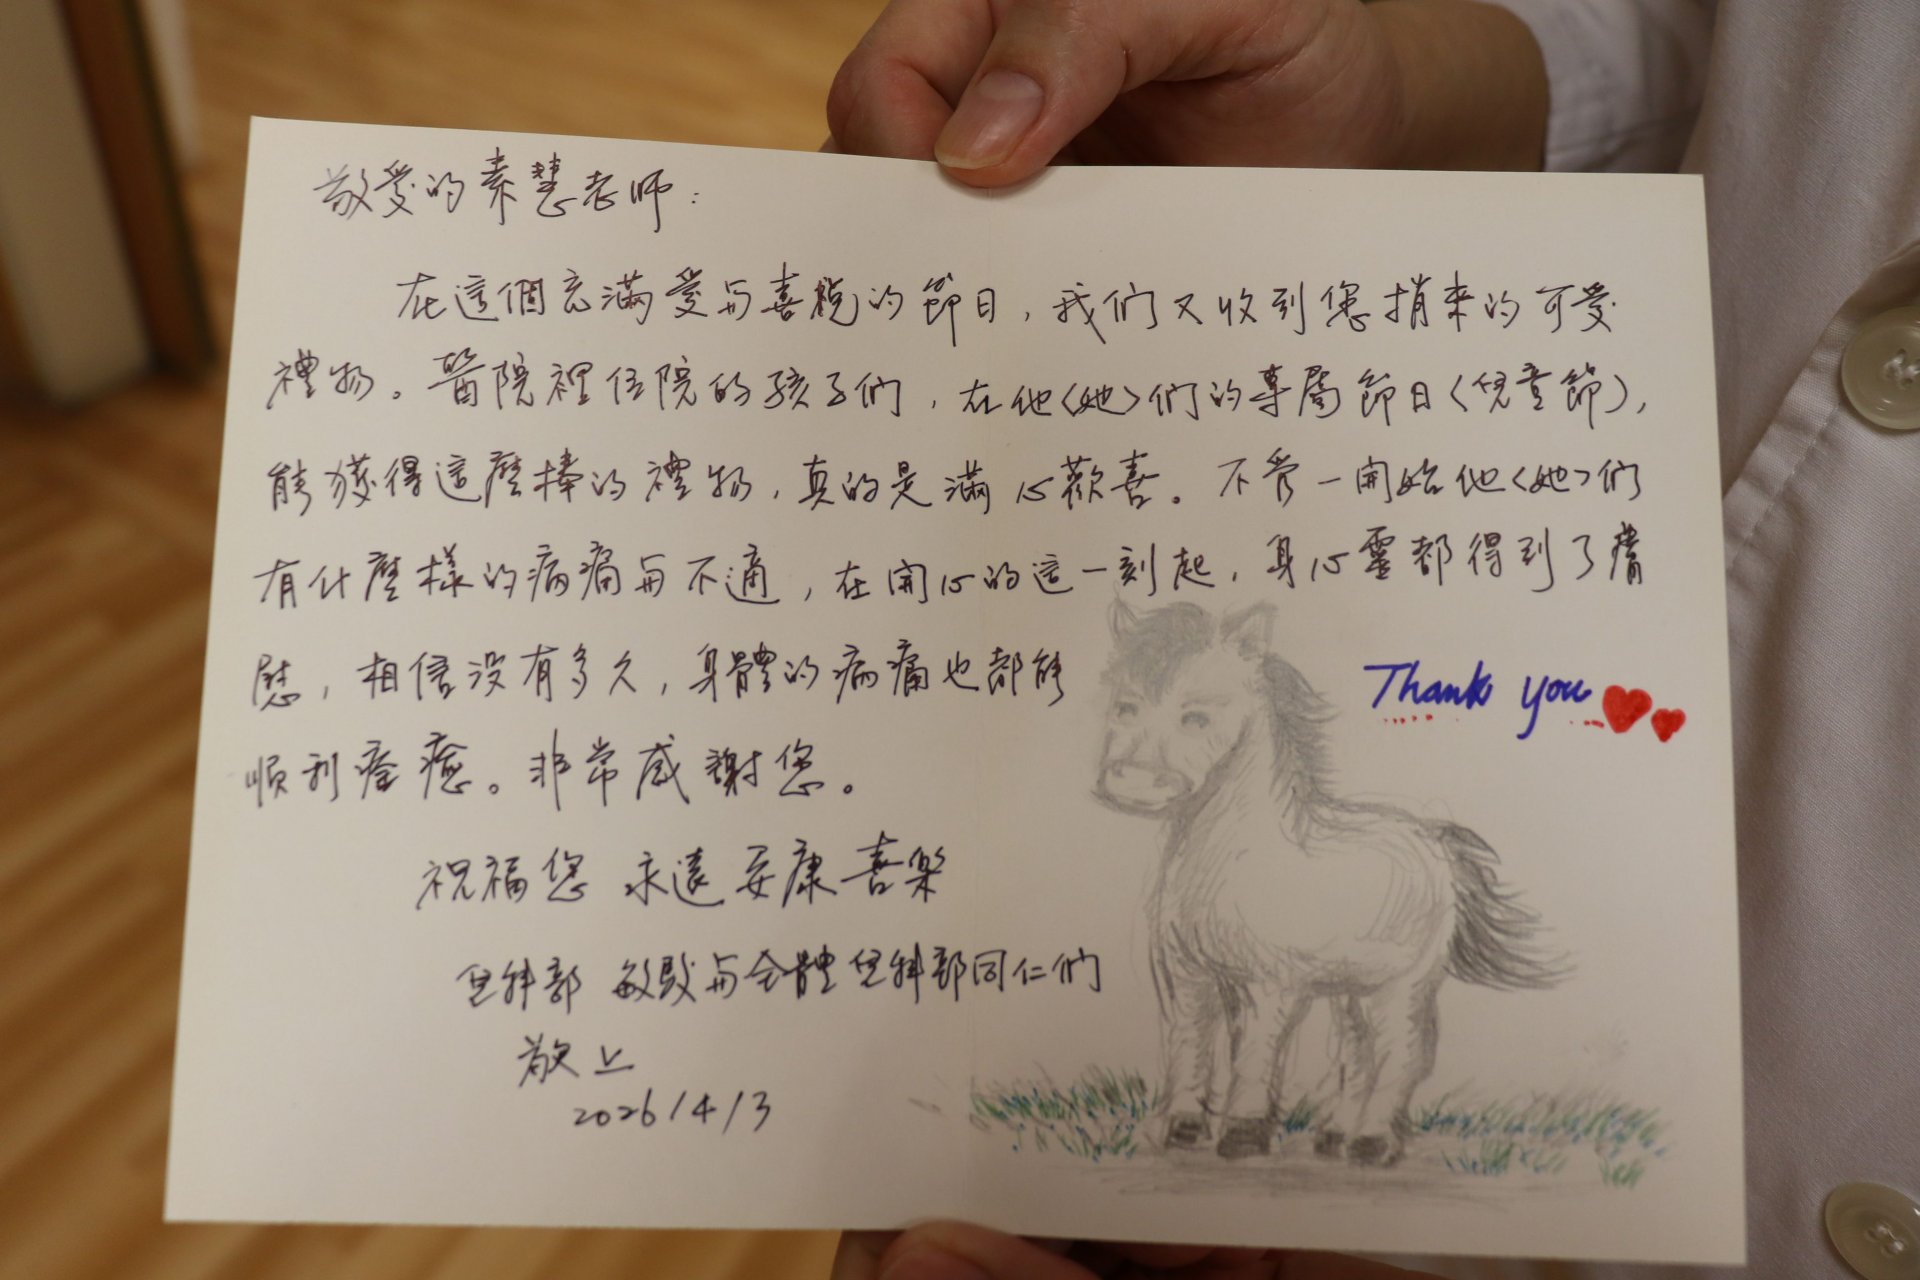 敬愛的素慧老師：
在這個充滿愛與喜悅的節日，我們又收到您捎來的可愛
禮物。醫院裡住院的孩子們，在他<她>們的專屬節日<兒童節>，
能獲得這麼棒的禮物，真的是滿心歡喜。不管一開始他<她>們
有什麼樣的病痛與不適，在開心的這一刻起，身心靈都得到了膚
慰，相信沒有多久，身體的病痛也都能
Thank you
順利痊癒。非常感謝您。
祝福您 永遠安康喜樂
兒科部 敏
與全體兒科部同仁們
敬上
2026/4/3